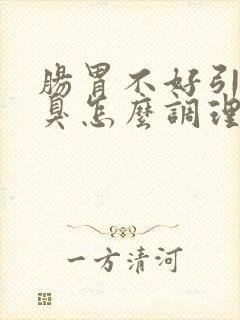 腸胃不好引
臭怎麼調理
一方清河